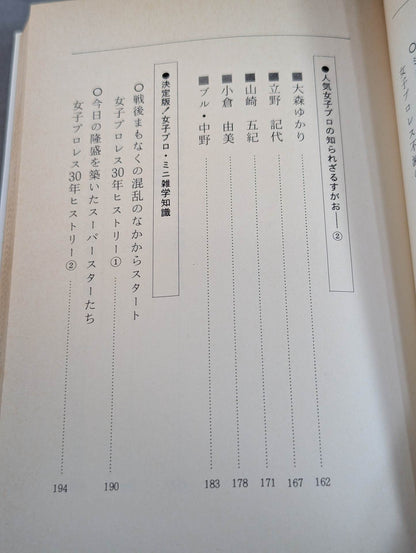 ●人気女子プロの知られざるすがお──②
大森ゆかり 162
立野 記代 167
山崎 五紀 171
小倉 由美 178
ブル・中野 183
●決定版!女子プロ・ミニ雑学知識
◎戦後まもなくの混乱のなかからスタート
女子プロレス30年ヒストリー① 190
◎今日の隆盛を築いたスーパースターたち
女子プロレス30年ヒストリー② 194